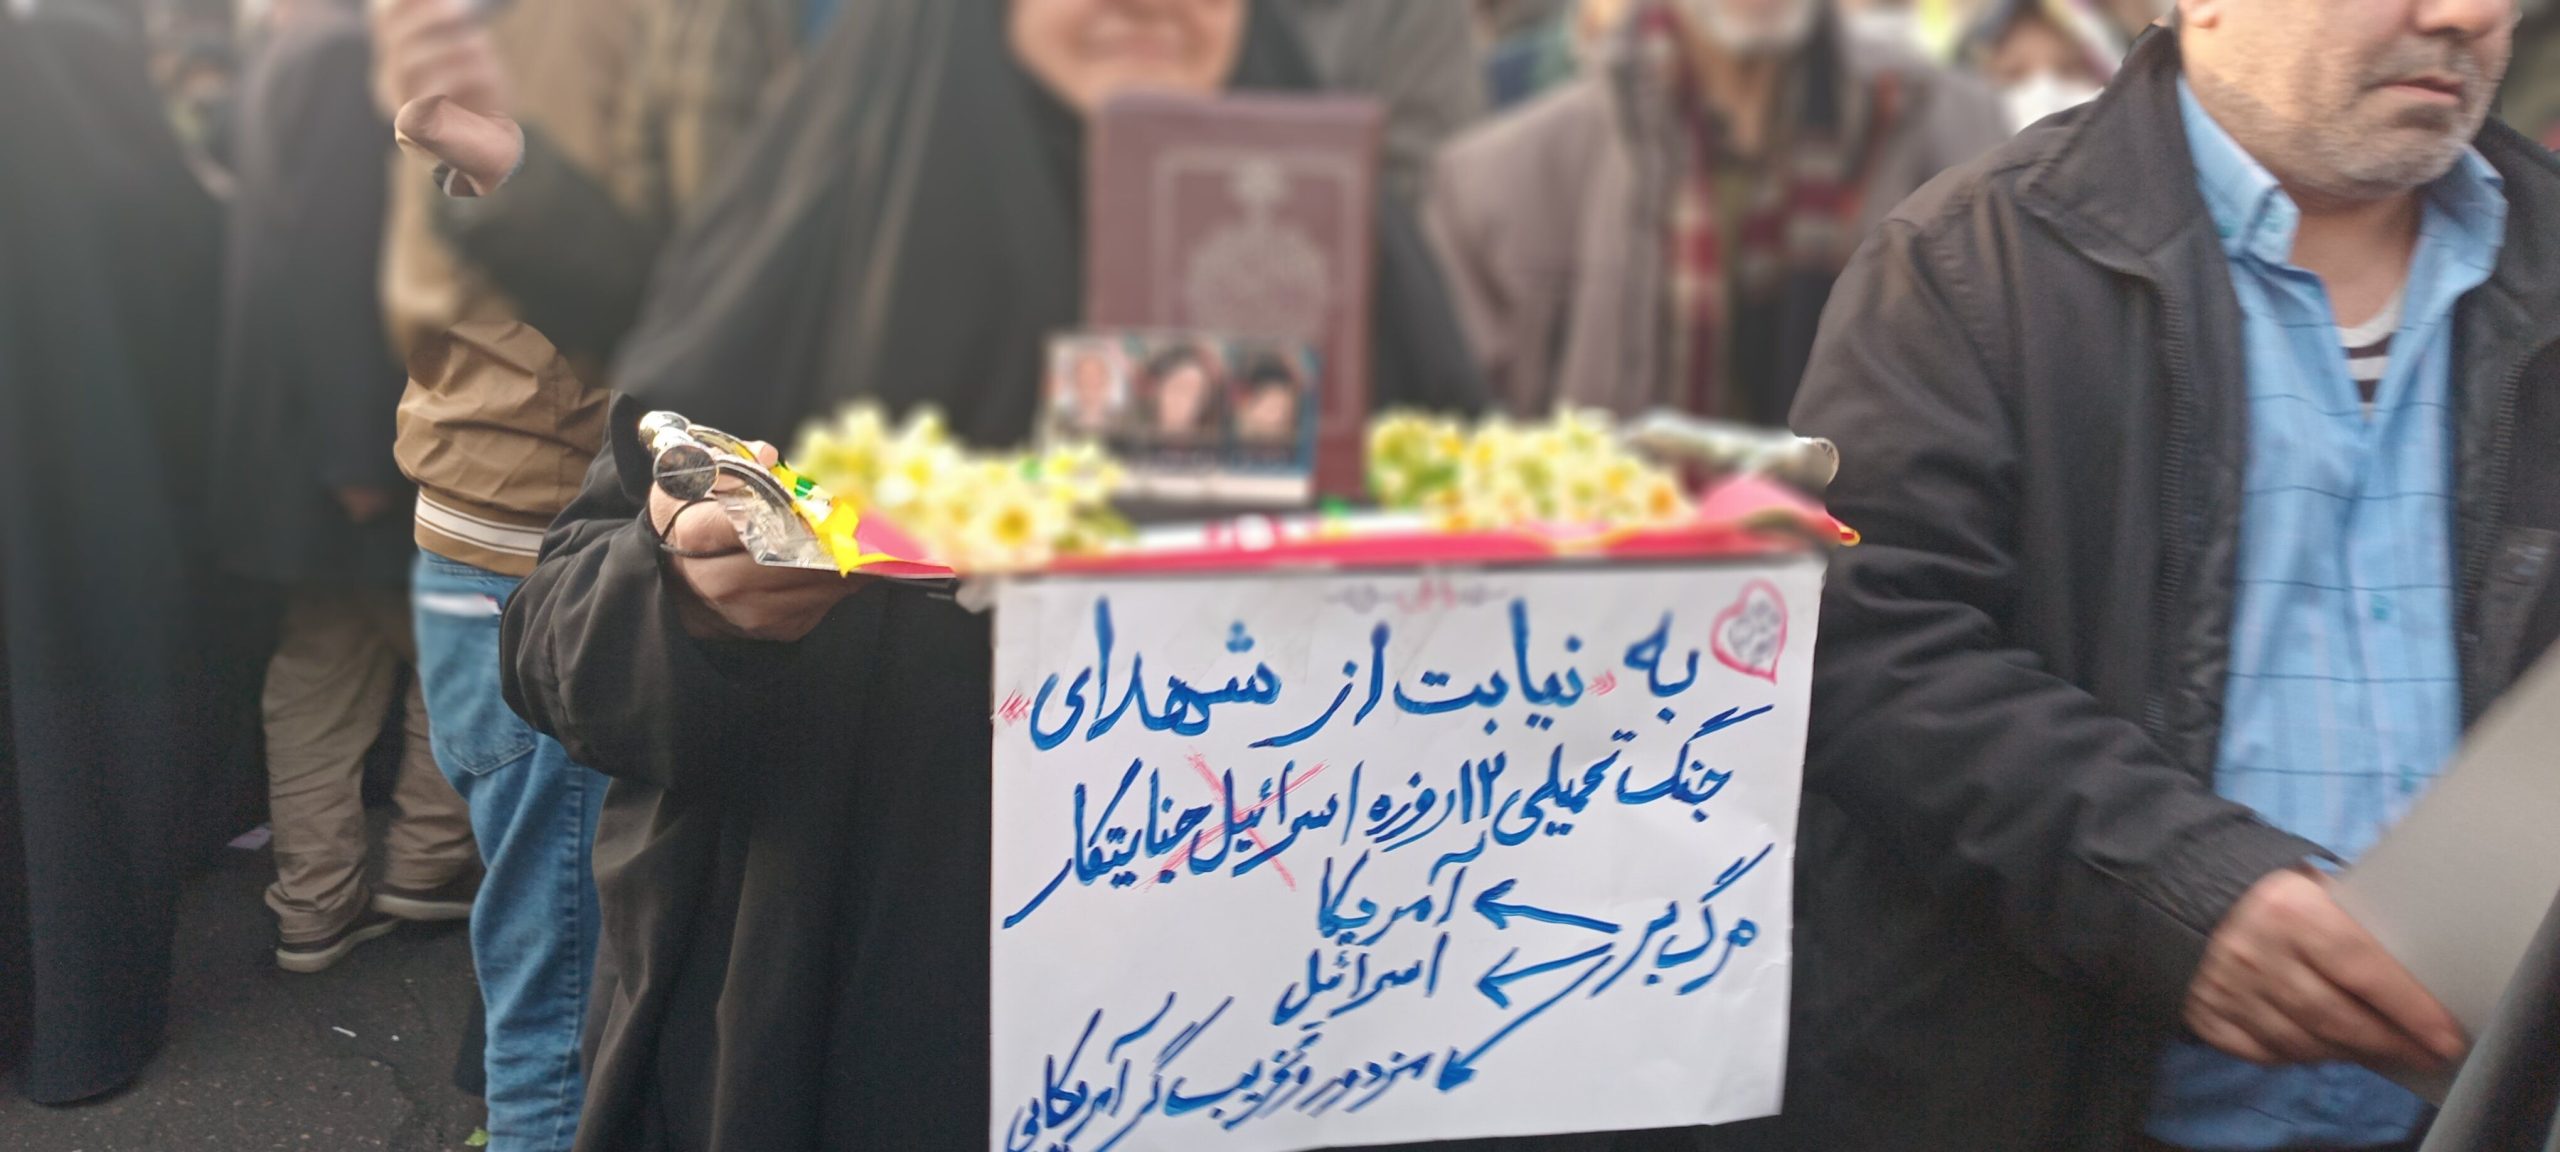 به «نیابت از شهدای»
جنگ تحمیلی ۱۲ روزه اسرائیل جنایتکار
مرگ بر
آمریکا
اسرائیل
مزدور و تخریب گر آمریکایی